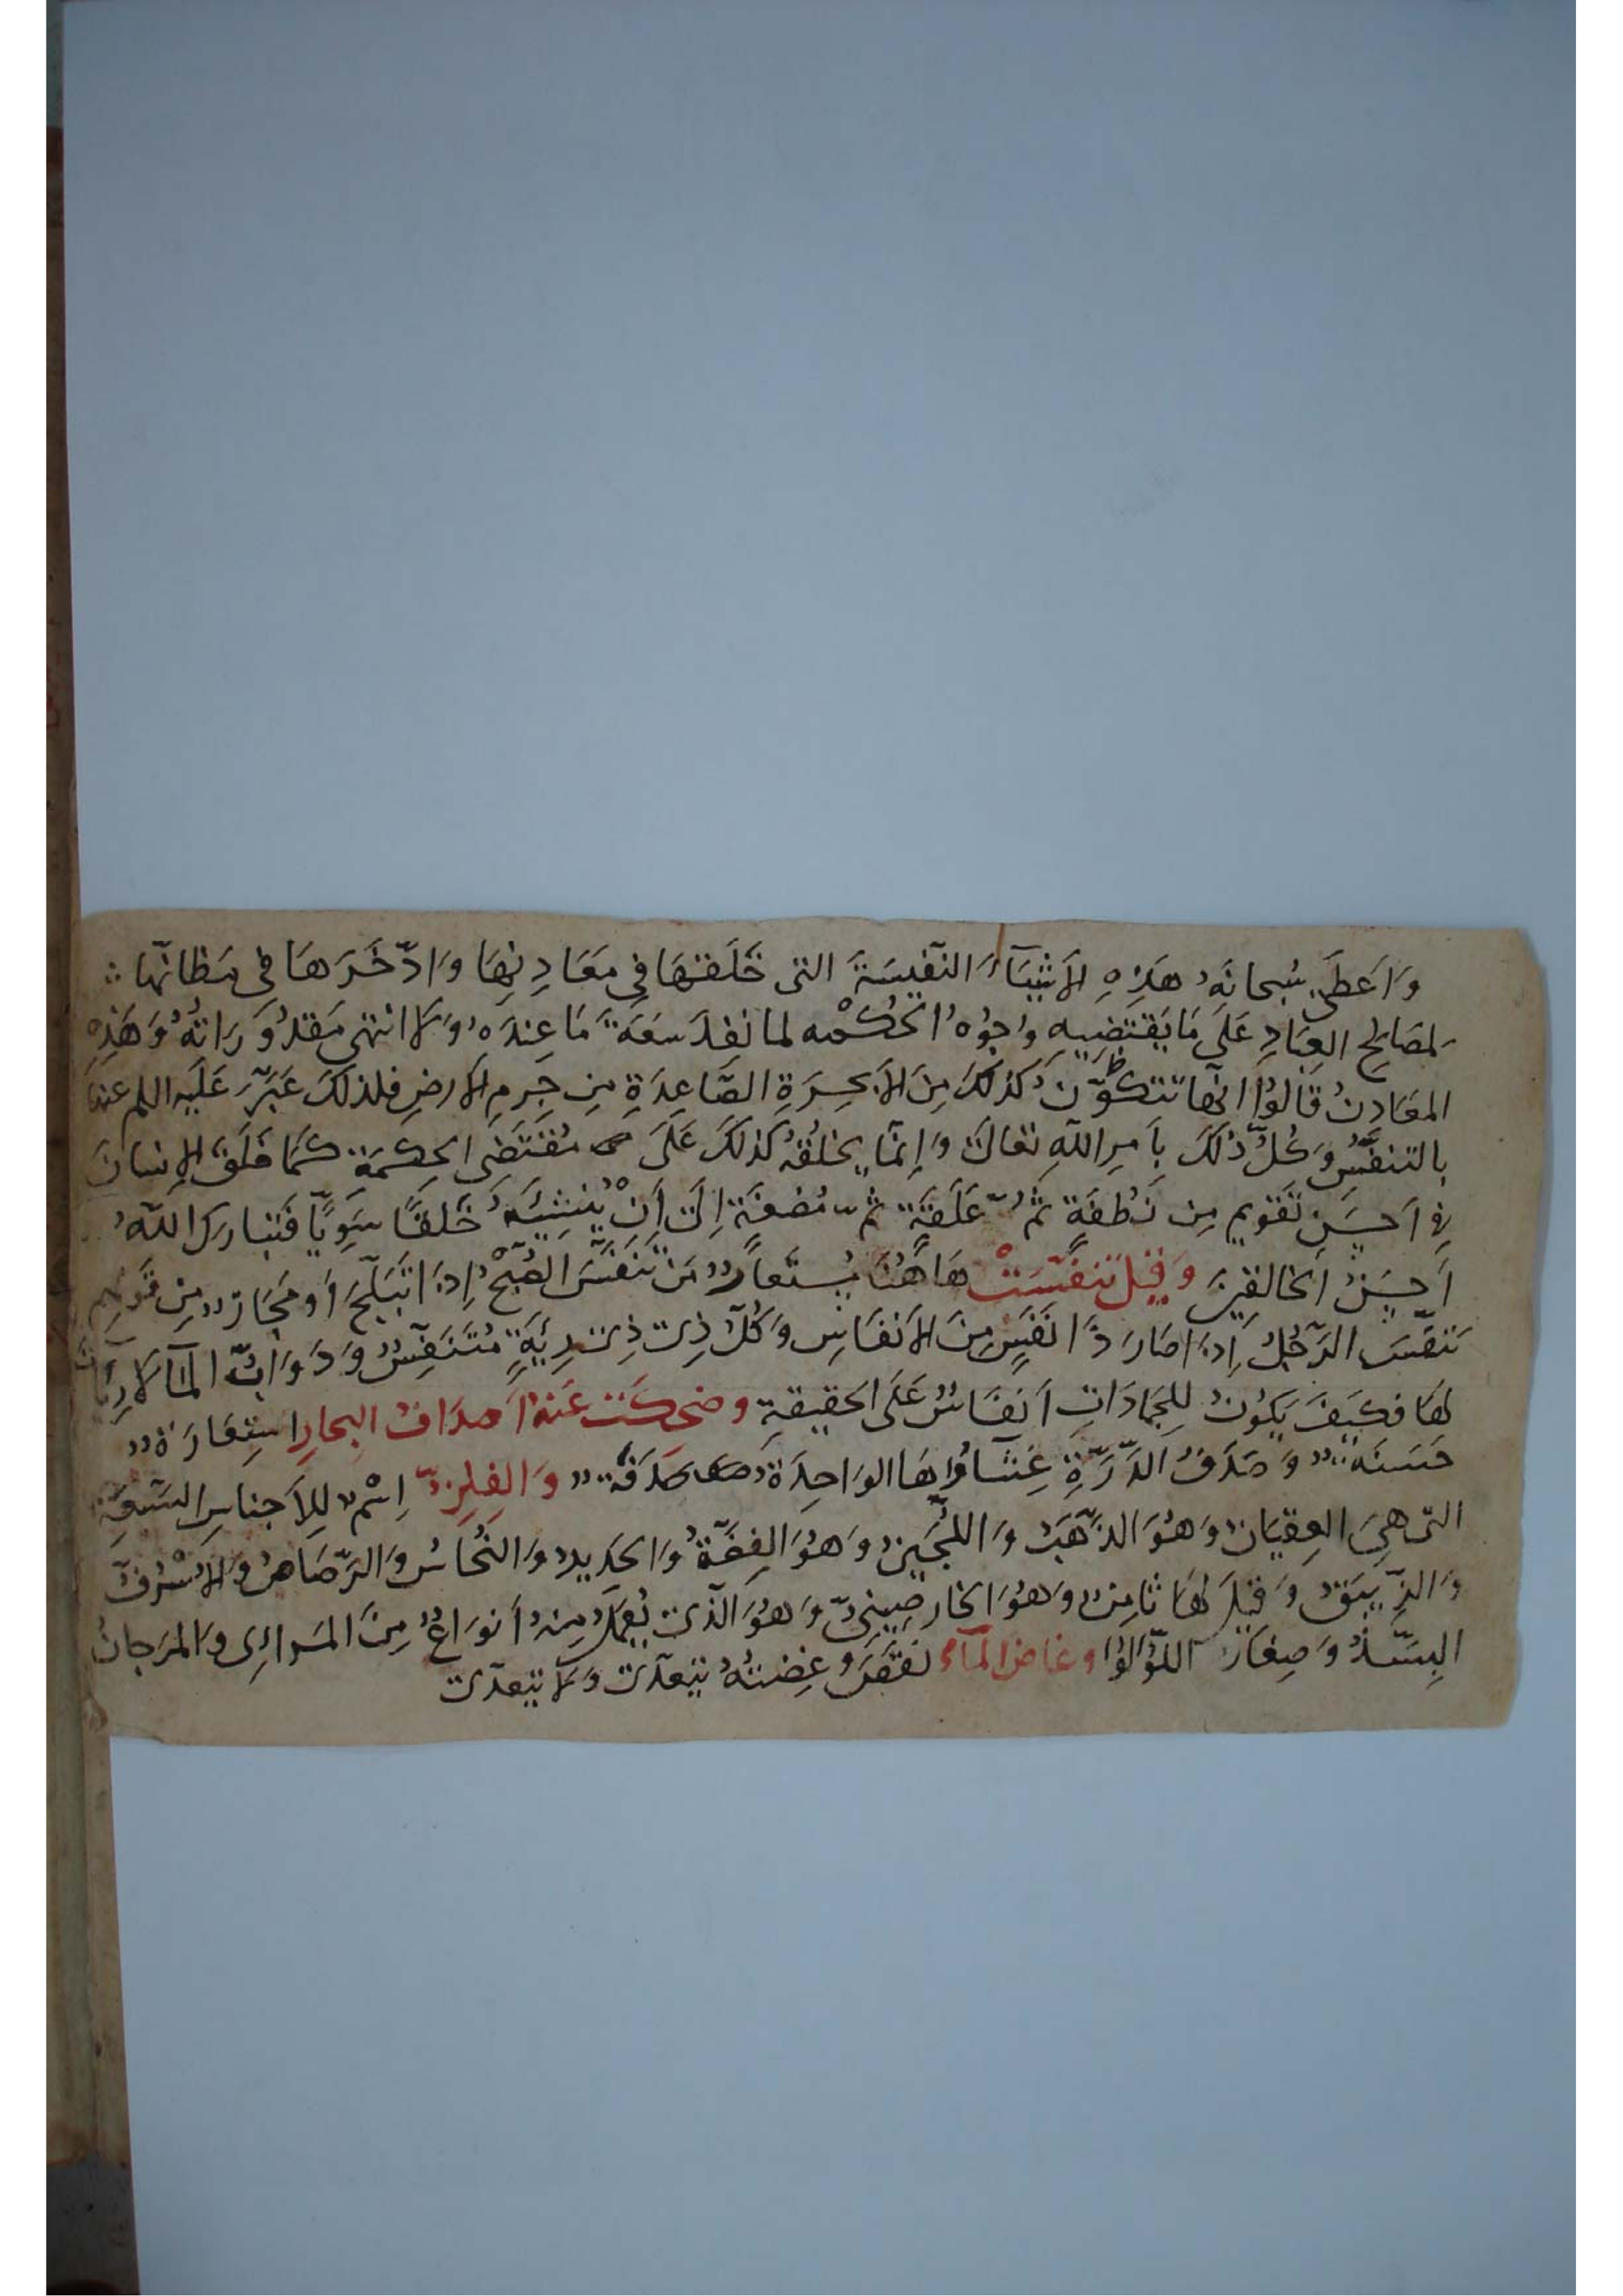 وَاَعطَى سُبحانَهُ هَذِهِ الاَشيَآءَ النَفيسَةَ التى خَلَقَهَا فِي مَعَادِنِهَا وَادّخَرَهَا فى مَظانّها
لمَصَالحِ العِبَادِ عَلَى مَا يَقتَضيهِ وُجُوهُ الحُكْمه لما نفدَ سَعَةَ مَا عِندَهُ وَلا انتهى مَقدُورَاتُهُ وَهَذِهِ
المعَادِنُ قَالوُا انّها تتكوّنُ كَذَلكَ مِنَ الاَبخِرَةِ الصّاعِدَةِ مِن جِرمِ الارضِ فلذلكَ عَبّرَ عَلَيه السلم عنها
بالتنفّسُ وَكُلّ ذَلكَ بِاَمرِ اللّهِ تعَالىَ وَإنمّا يخلقُهُ كَذلكَ عَلَى مُقتَضَى الحِكمَة كَمَا خَلَقَ الإنسَانَ
فى اَحسَنِ تَقويمٍ مِن نُطفَةٍ ثُمّ عَلَقَةٍ ثم مُضغَةٍ اِلىَ اَنْ يُنشِيَهُ خَلقًا سَوِيًّا فَتَبَارَكَ اللّهُ
اَحسَنُ الخالقينَ وَقيلَ تنفّسَتْ هَاهُنَا مُستَعارٌ مَن تَنفّسَ الصُبْحُ اِذَا تَبَلّجَ اَو مجَازٌ مِن قَولِهِم
تَنفّسَ الرّجُلُ اِذَا صَارَ ذَا نَفَسٍ مِنَ الاَنفَاسِ وَكُلّ ذِى ذِى رِيَةٍ مُتَنَفِّسٌ وَدَوَابّ المآ لا رِيَاتَ
لهَا فكَيفَ يَكونُ لِلجَمَادَاتِ اَنفَاسٌ عَلَى الحَقيقةِ وضحكَت عَنهُ اَصدَافُ البحَارِ استِعَارَةٌ
حَسَنَةٌ وَصَدَفُ الدّرّةِ غِشَاؤُهَا الوَاحِدَةُ صَدَفَةٌ وَالفِلِزّ اِسْمٌ لِلاَجنَاسِ السّبعَةِ
التى هىَ العِقيَانُ وَهُوَ الذّهَبُ وَاللّجَينُ وَهُوَ الفِضّةُ وَالحَديدُ وَالنُّحَاسُ وَالرّصَاصُ وَالاُسْرُفُ
وَالزّيبَقُ وَقيلَ لهَا ثامِنٌ وَهُوَ الخَارصِينىّ وَهُوَ الّذى يُعمَلُ مِنهُ اَنوَاعٌ مِنَ المَرَائى وَالمَرجَانُ
البسّذُ وَصِغَارُ اللّؤلؤُ وغاضَ المآءُ نقَصَ وَغِضتُهُ يتعَدّى وَلا يتعَدّى